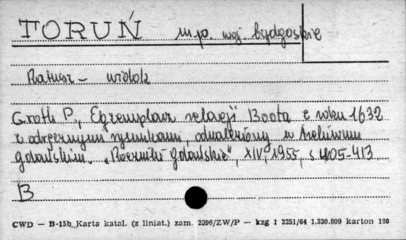 TORUŃ m.p. woj. bydgoskie
Ratusz – widok
Groth P., Egzemplarz relacji Boota z roku 1632
z odręcznymi rysunkami, odnaleziony w Archiwum
gdańskim. „Rocznik Gdański", XIV, 1955, s. 405-413
B
CWD — B-15b Karta katal. (z liniat.) zam. 2396/ZW/P — kzg 1 2251/64 1.330.000 karton 180